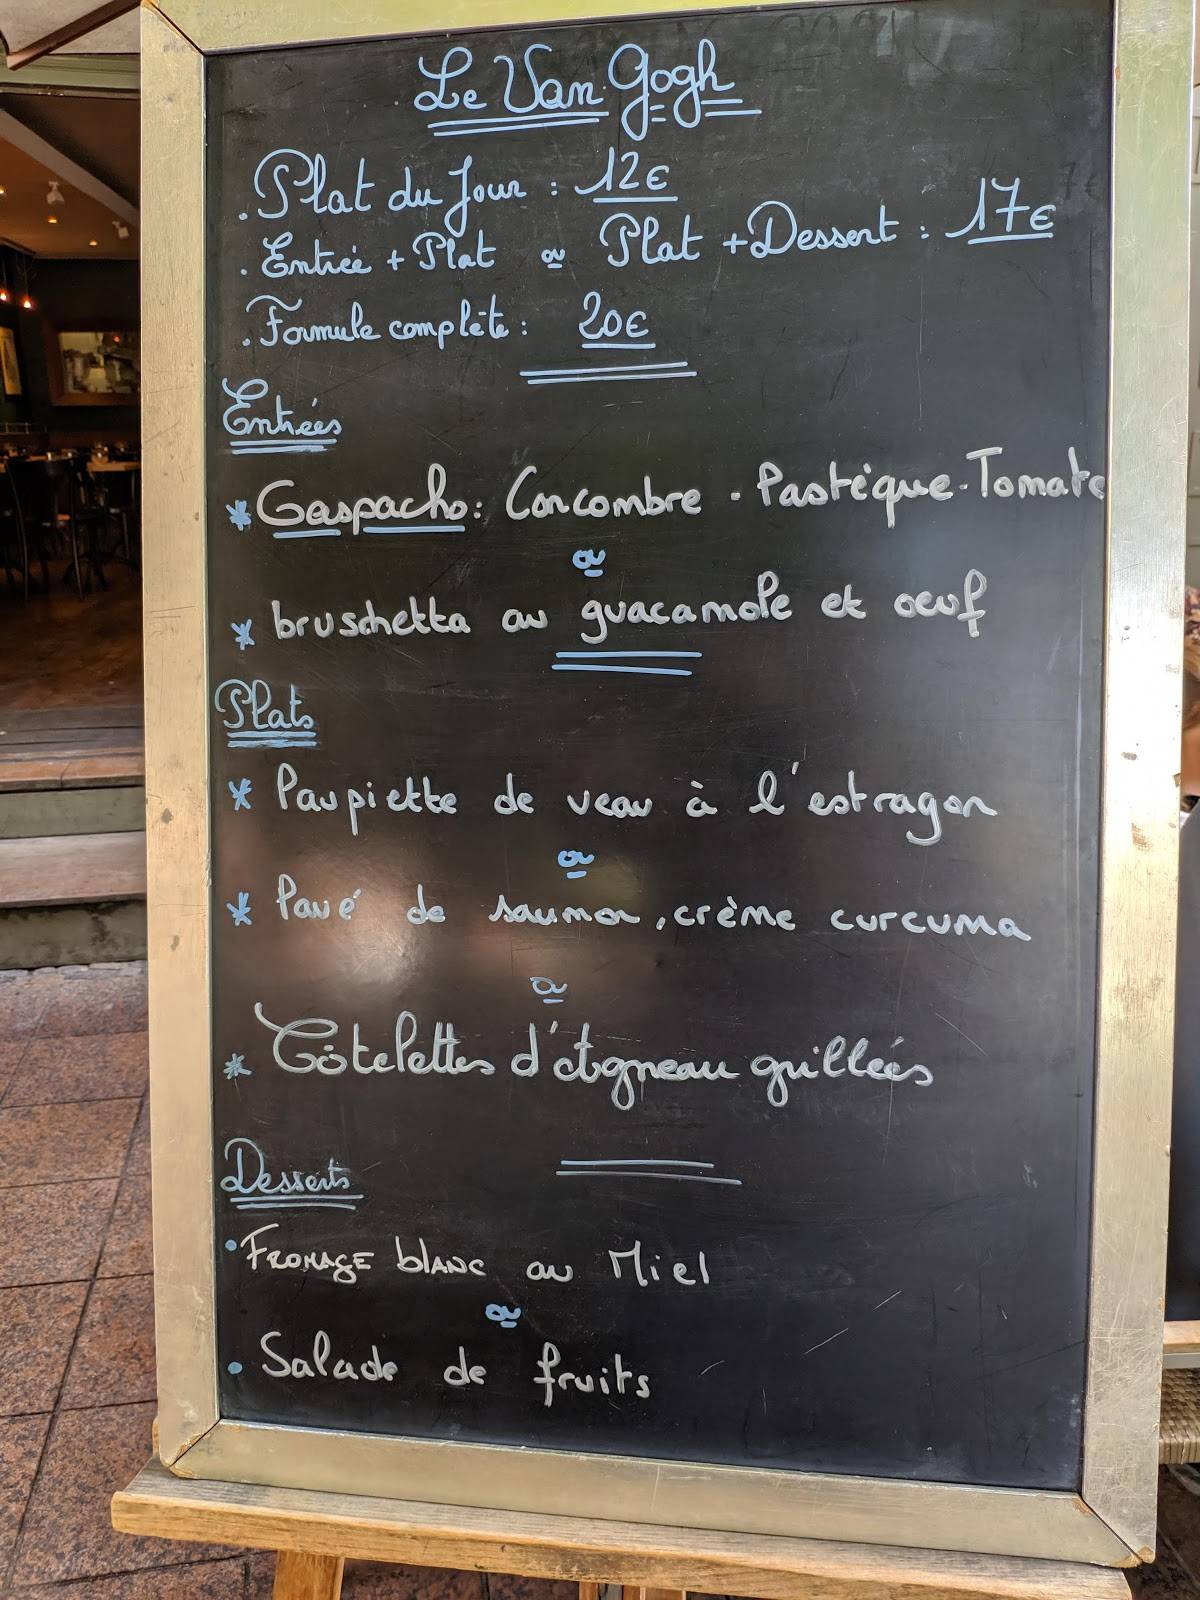 Le Van Gogh
. Plat du Jour : 12€
. Entrée + Plat ou Plat + Dessert : 17€
. Formule complète : 20€
Entrées
* Gaspacho : Concombre . Pastèque . Tomate
ou
* bruschetta au guacamole et oeuf
Plats
* Paupiette de veau à l'estragon
ou
* Pavé de saumon, crème curcuma
ou
* Côtelettes d'Agneau grillées
Desserts
• Fromage blanc au Miel
ou
• Salade de fruits